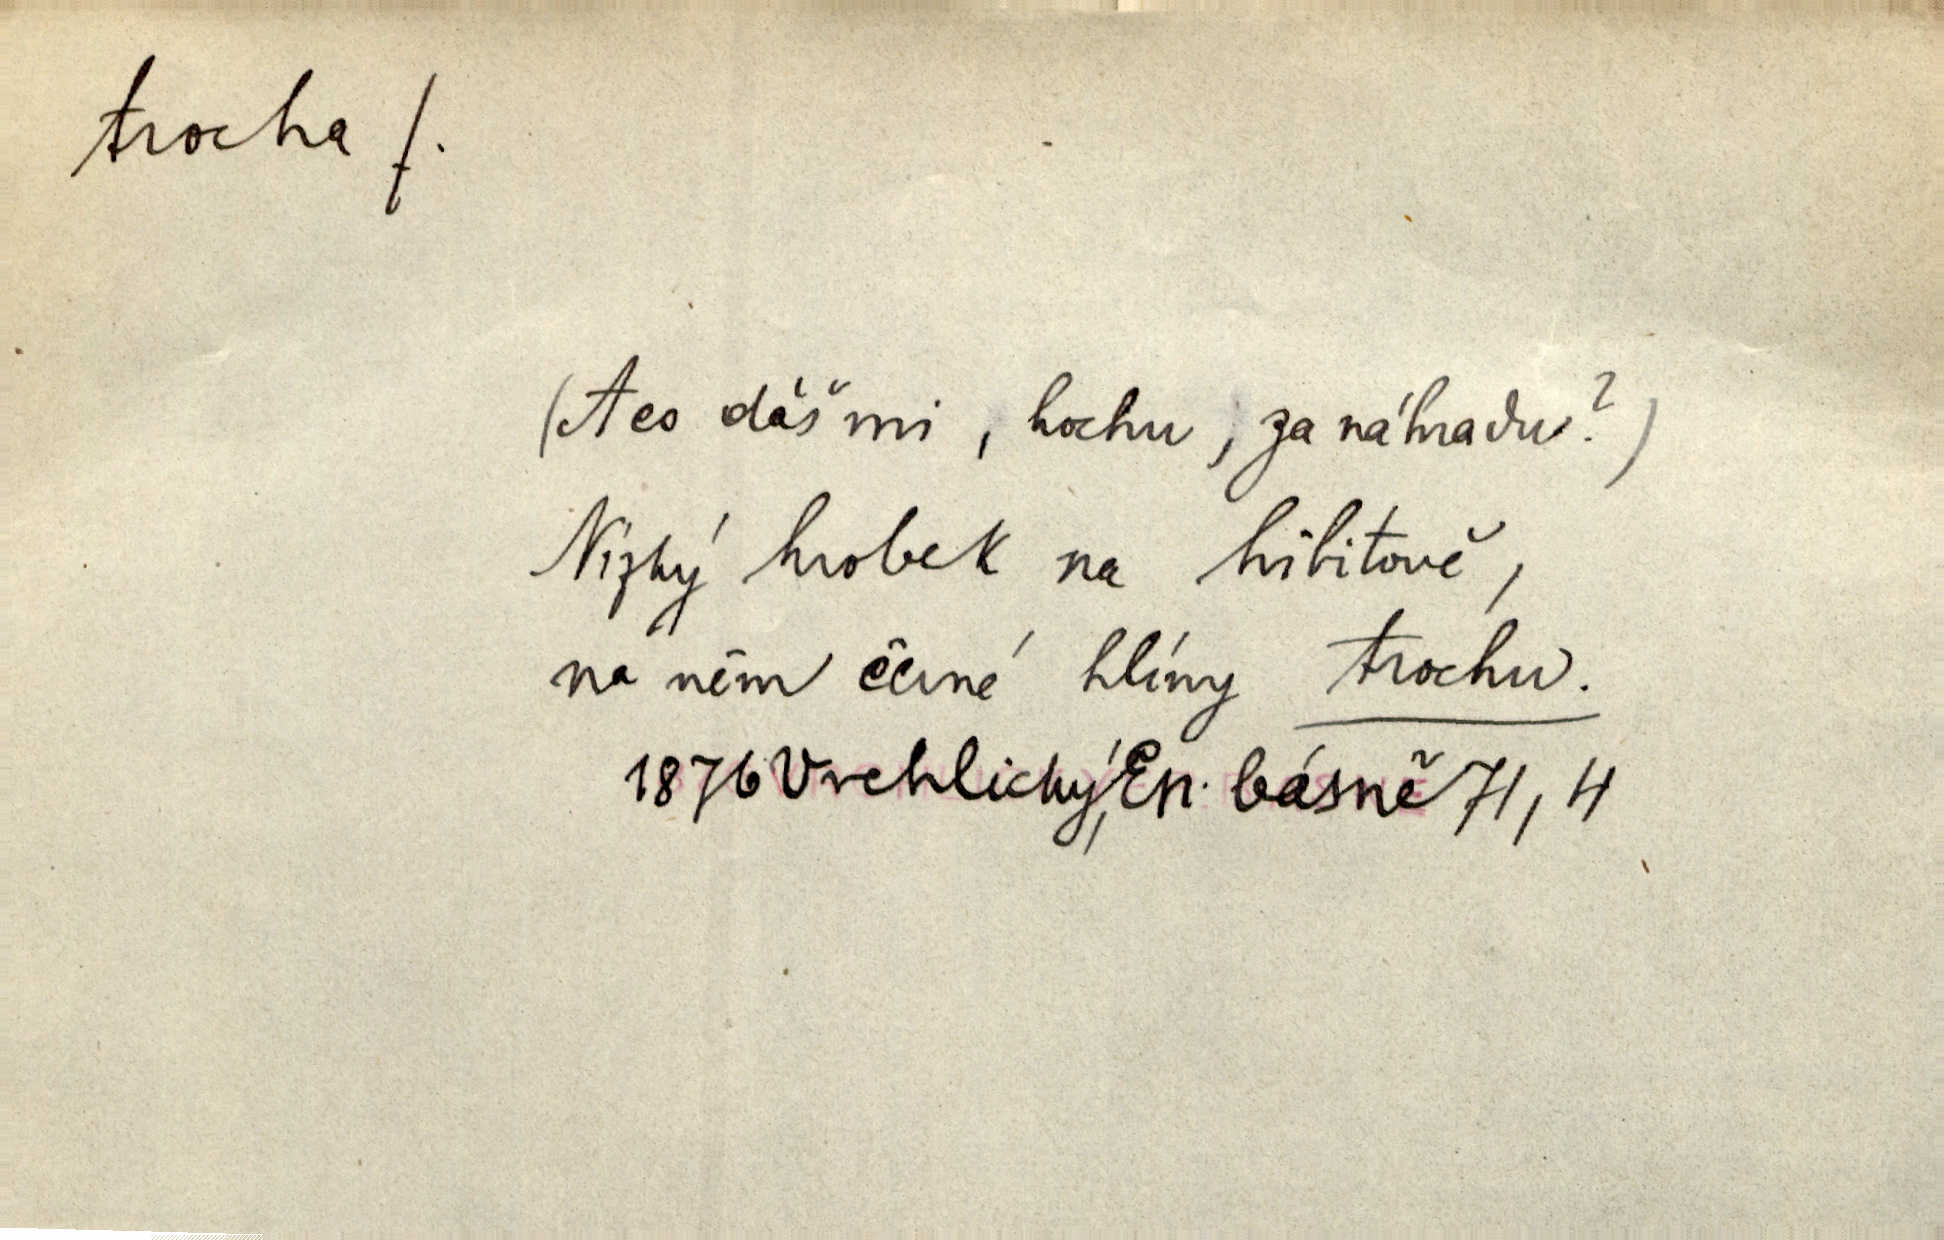 trocha f.
(A co dáš mi, hochu, za náhradu?)
Nízký hrobek na hřbitově,
na něm černé hlíny trochu.
1876 Vrchlický, Ep. básně 71, 4